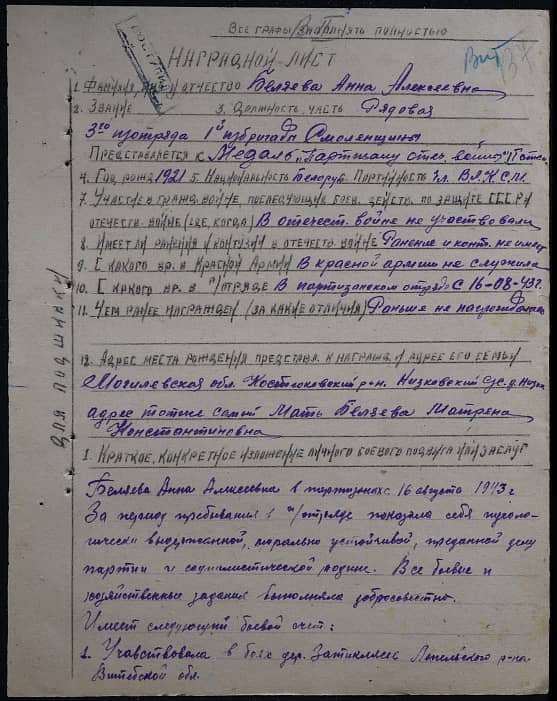 Все графы заполнять полностью
НАГРАДНОЙ ЛИСТ
1. Фамилия, имя и отчество Беляева Анна Алексеевна
2. Звание 3. Должность, часть Рядовая
3го п/отряда 1й п/бригады Смоленщины
Представляется к Медаль "Партизану отеч. войны"
4. Год рожд 1921 5. Национальность Белорус. Партийность Чл. ВЛКСМ
7. Участие в гражд. войне, последующие боев. действ. по защите СССР и
отечеств. войне (где, когда) В отечест. войне не участвовали
8. Имеет ли ранения и контузии в отечеств. войне Ранение и конт. не имеет
9. С какого вр. в Красной Армии В красной армии не служила
10. С какого вр. в п/отряде В партизанском отряде с 16-08-43г.
11. Чем ранее награжден (за какие отличия) Раньше не награждалась
12. Адрес места рождения представл. к награжд. и адрес его семьи
Могилевская обл. Костюковский р-он. Низковский с/с. д.
адрес тот же самый Мать Беляева Матрена
Константиновна
I. Краткое, конкретное изложение личного боевого подвига или заслуг
Беляева Анна Алексеевна в партизанах с 16 августа 1943 г
За период пребывания в п/отряде показала себя идеоло-
гически выдержанной, морально устойчивой, преданной делу
партии и социалистической родине. Все боевые и
хозяйственные задания выполняла добросовестно.
Имеет следующий боевой счет:
1. Учавствовала в боях дер. Лепельского р-на
Витебской обл.
Для подшивки
Вит